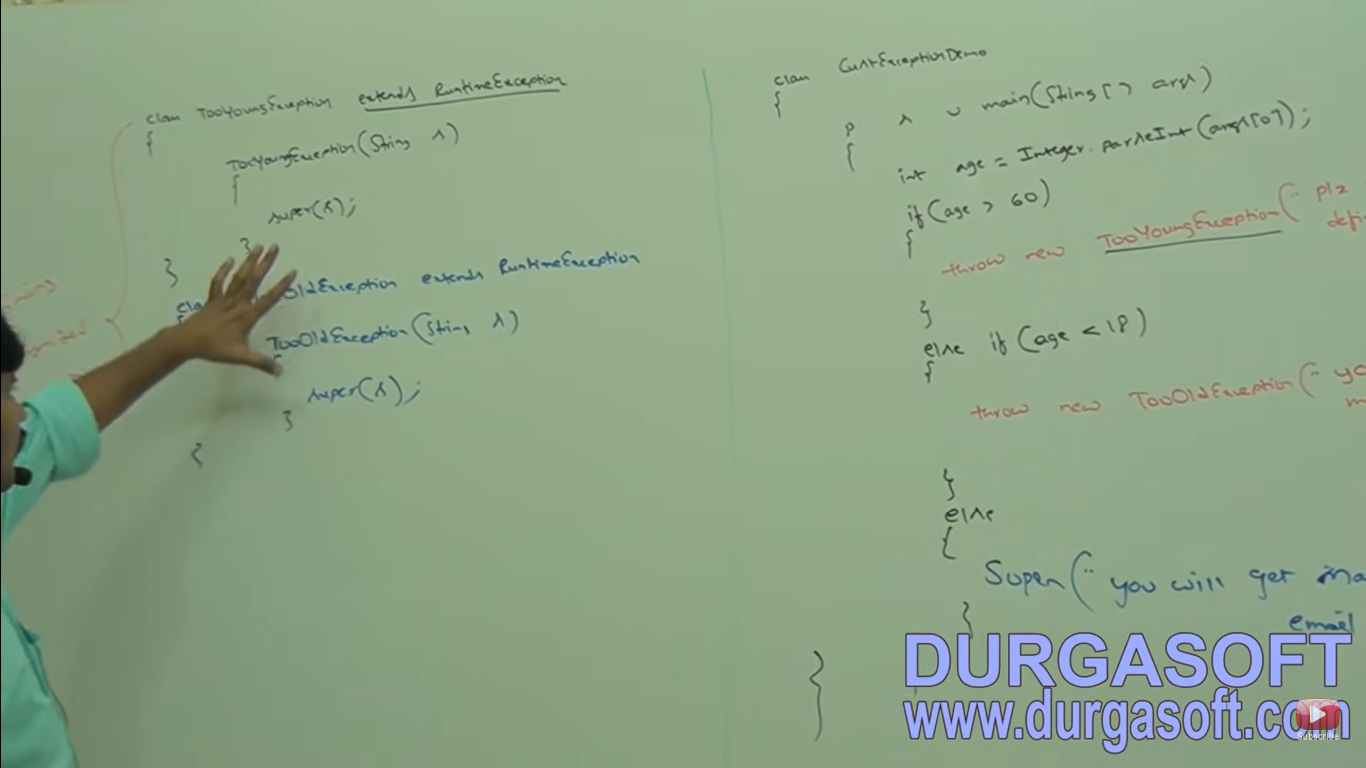 class TooYoungException extends RuntimeException
{
TooYoungException(String s)
{
super(s);
}
}
OldException extends RuntimeException
TooOldException(String s)
{
super(s);
}
{
class CustExceptionDemo
{
p s v main(String[] args)
{
int age = Integer.parseInt(args[0]);
if(age > 60)
{
throw new TooYoungException("plz
}
else if (age < 18)
{
throw new TooOldException("
}
else
{
Sopen("you will get
email
}
}
DURGASOFT
www.durgasoft.com
Subscribe